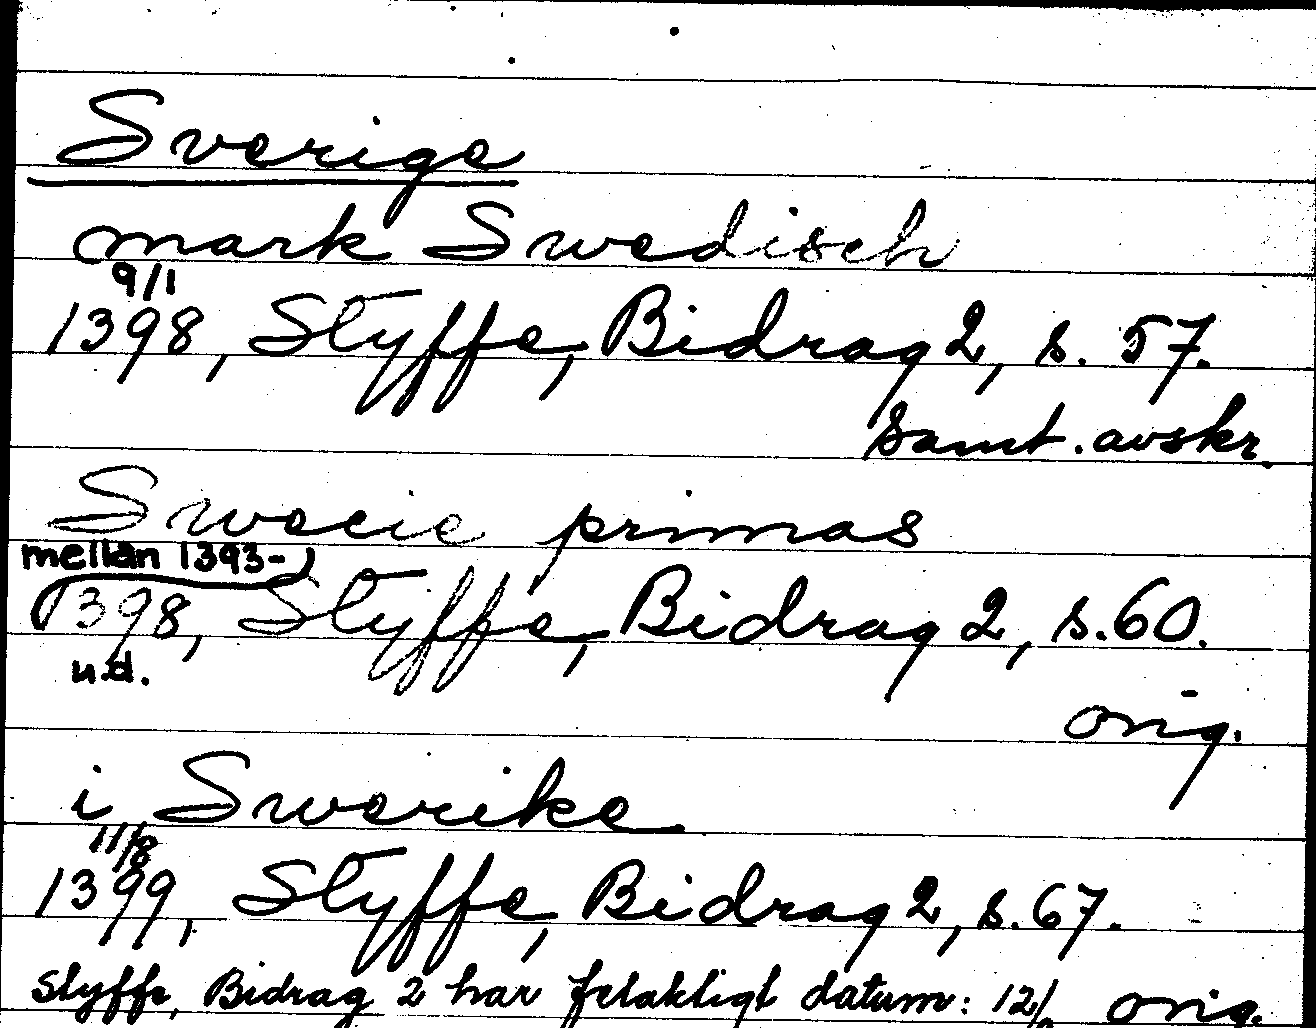 Sverige
mark Swedisch
9/1
1398, Styffe, Bidrag 2, s. 57.
samt. avskr.
Swecie primas
mellan 1393-
1398, Styffe, Bidrag 2, s. 60.
u.d.
orig.
i Swerike
11/8
1399, Styffe, Bidrag 2, s. 67.
Styffe, Bidrag 2 har felaktigt datum: 12/ orig.